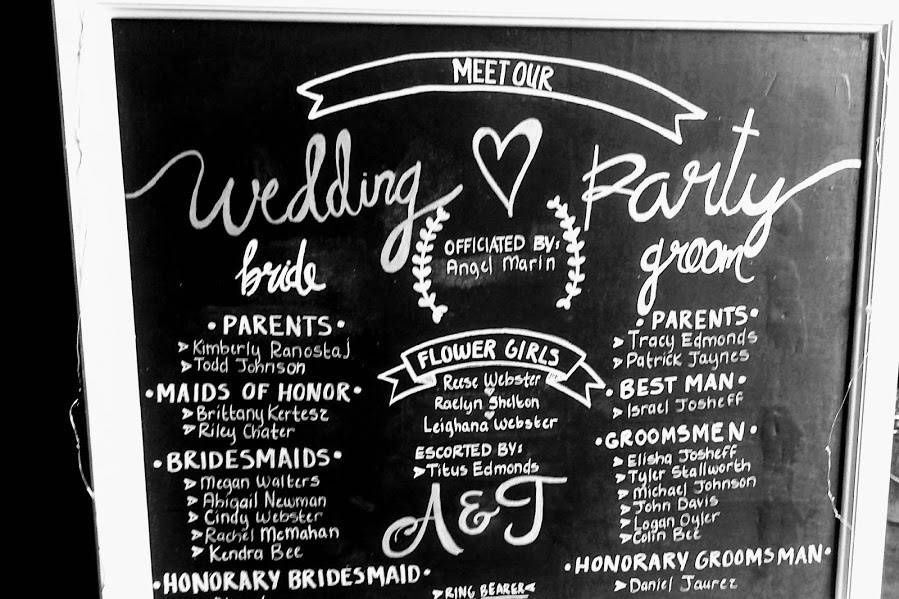 MEET OUR
Wedding Party
OFFICIATED BY:
Angel Marin
bride
• PARENTS •
➤Kimberly Ranostaj
➤Todd Johnson
• MAIDS OF HONOR •
➤Brittany Kertesz
➤Riley Chater
• BRIDESMAIDS •
➤Megan Walters
➤Abigail Newman
➤Cindy Webster
➤Rachel McMahan
➤Kendra Bee
• HONORARY BRIDESMAID •
FLOWER GIRLS
Reese Webster
Raelyn Shelton
Leighana Webster
ESCORTED BY:
➤Titus Edmonds
A&T
➤RING BEARER◄
groom
• PARENTS •
➤Tracy Edmonds
➤Patrick Jaynes
• BEST MAN •
➤Israel Josheff
• GROOMSMEN •
➤Elisha Josheff
➤Tyler Stallworth
➤Michael Johnson
➤John Davis
➤Logan Oyler
➤Colin Bee
• HONORARY GROOMSMAN •
➤Daniel Jaurez